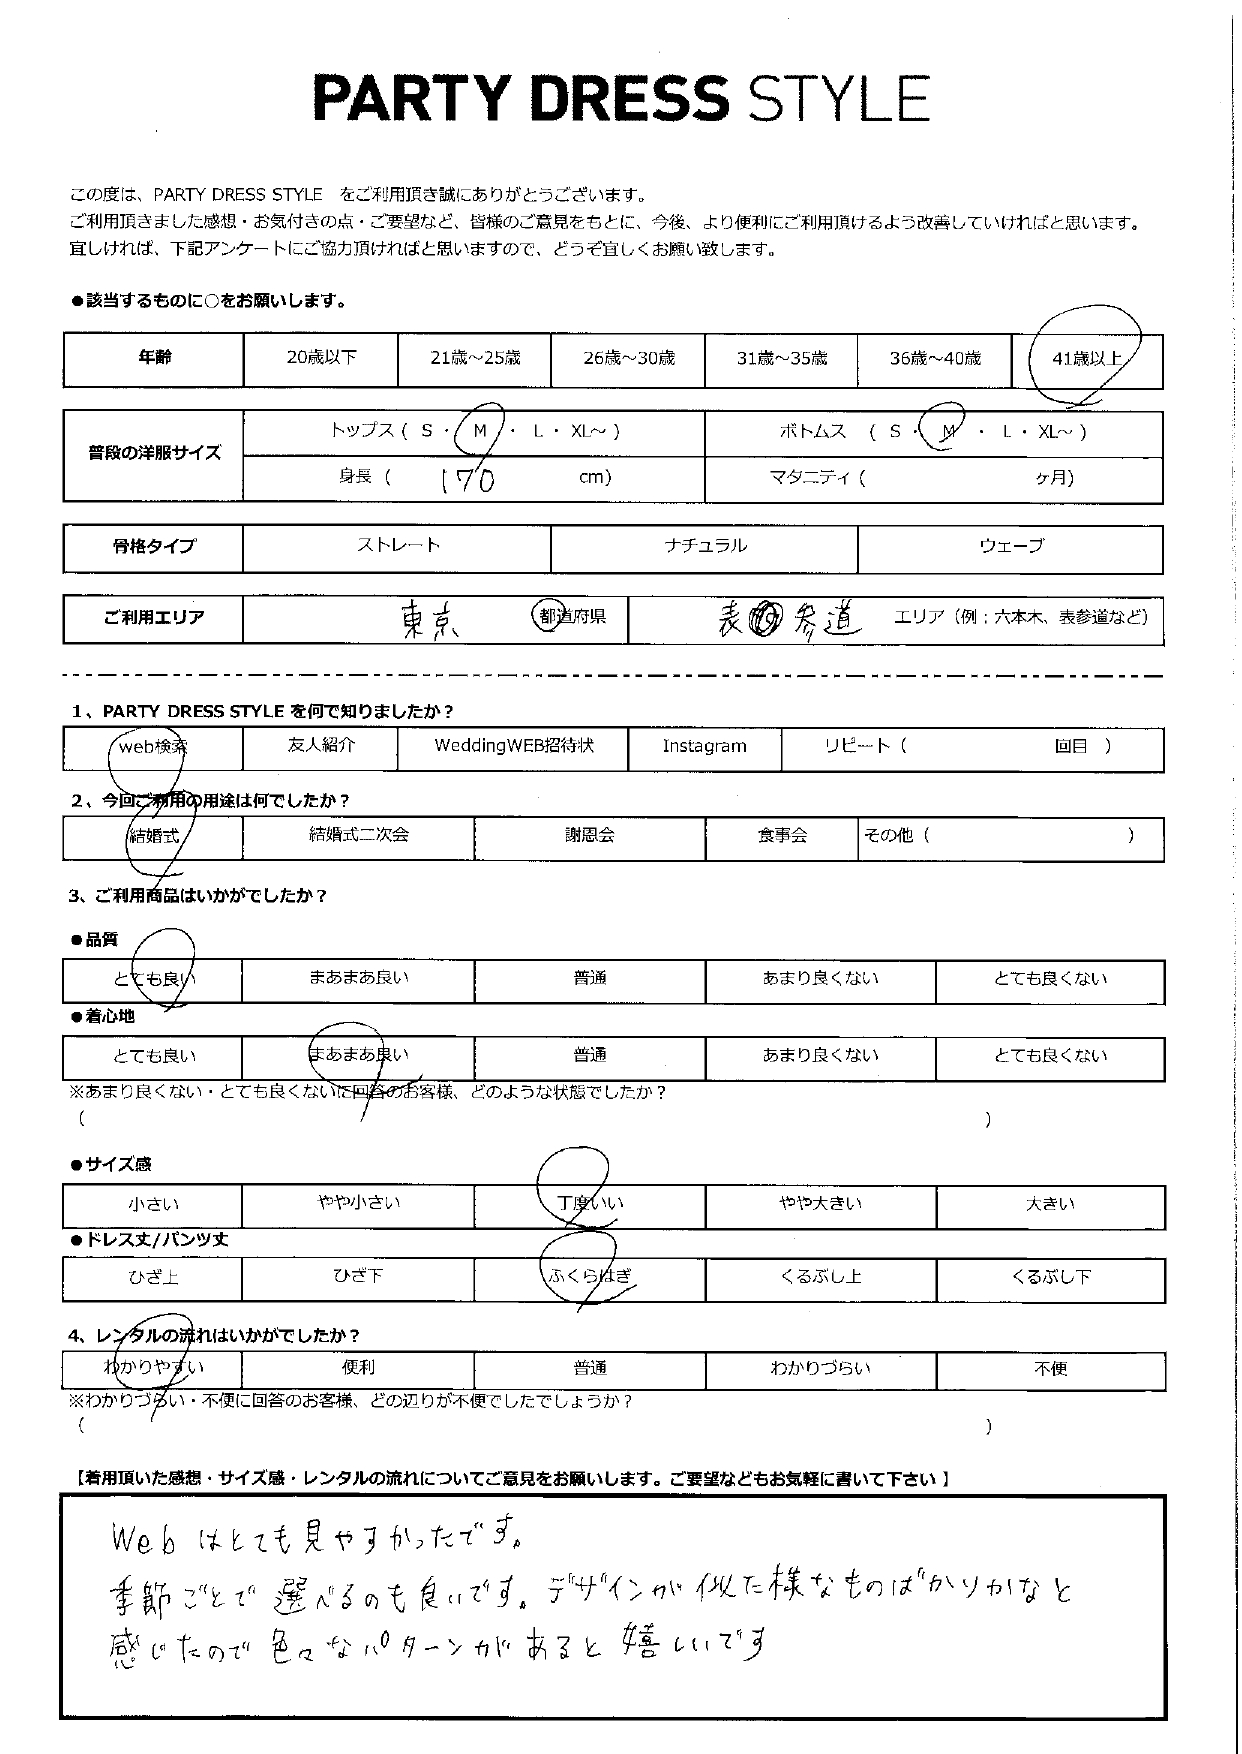 PARTY DRESS STYLE
この度は、PARTY DRESS STYLE　をご利用頂き誠にありがとうございます。
ご利用頂きました感想・お気付きの点・ご要望など、皆様のご意見をもとに、今後、より便利にご利用頂けるよう改善していければと思います。
宜しければ、下記アンケートにご協力頂ければと思いますので、どうぞ宜しくお願い致します。
●該当するものに○をお願いします。
年齢 20歳以下 21歳～25歳 26歳～30歳 31歳～35歳 36歳～40歳 41歳以上
普段の洋服サイズ トップス（ S ・ M ・ L ・ XL～ ） ボトムス （ S ・ M ・ L ・ XL～ ）
身長（ 170 cm） マタニティ（ ヶ月）
骨格タイプ ストレート ナチュラル ウェーブ
ご利用エリア 東京 都道府県 表参道 エリア（例；六本木、表参道など）
1、PARTY DRESS STYLE を何で知りましたか？
web検索 友人紹介 WeddingWEB招待状 Instagram リピート（ 回目 ）
2、今回ご利用の用途は何でしたか？
結婚式 結婚式二次会 謝恩会 食事会 その他（ ）
3、ご利用商品はいかがでしたか？
●品質
とても良い まあまあ良い 普通 あまり良くない とても良くない
●着心地
とても良い まあまあ良い 普通 あまり良くない とても良くない
※あまり良くない・とても良くないに回答のお客様、どのような状態でしたか？
（ ）
●サイズ感
小さい やや小さい 丁度いい やや大きい 大きい
●ドレス丈/パンツ丈
ひざ上 ひざ下 ふくらはぎ くるぶし上 くるぶし下
4、レンタルの流れはいかがでしたか？
わかりやすい 便利 普通 わかりづらい 不便
※わかりづらい・不便に回答のお客様、どの辺りが不便でしたでしょうか？
（ ）
【着用頂いた感想・サイズ感・レンタルの流れについてご意見をお願いします。ご要望などもお気軽に書いて下さい 】
Webはとても見やすかったです。
季節ごとで選べるのも良いです。デザインが似た様なものばかりかなと
感じたので色々なパターンがあると嬉しいです